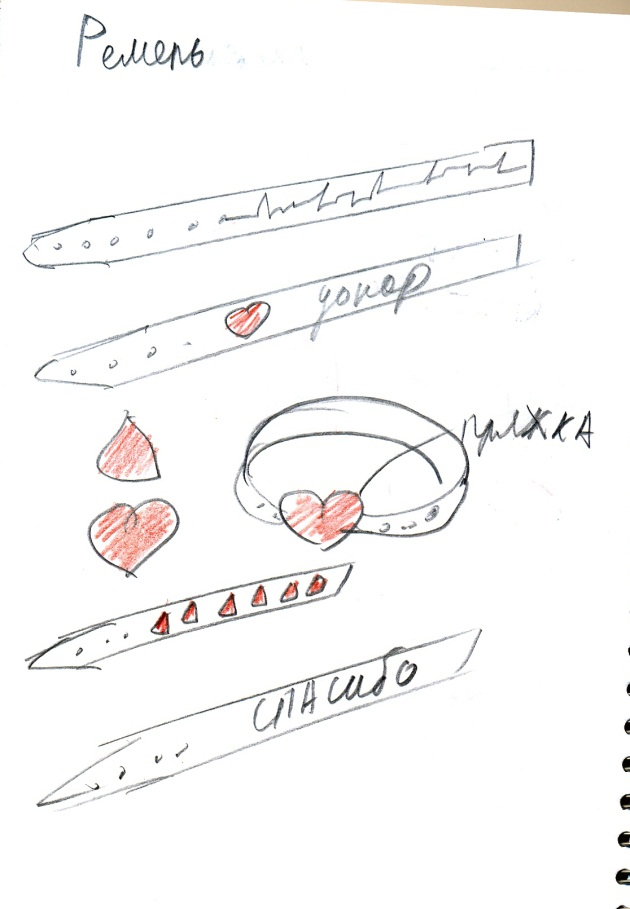 Ремень
донор
пряжка
спасибо